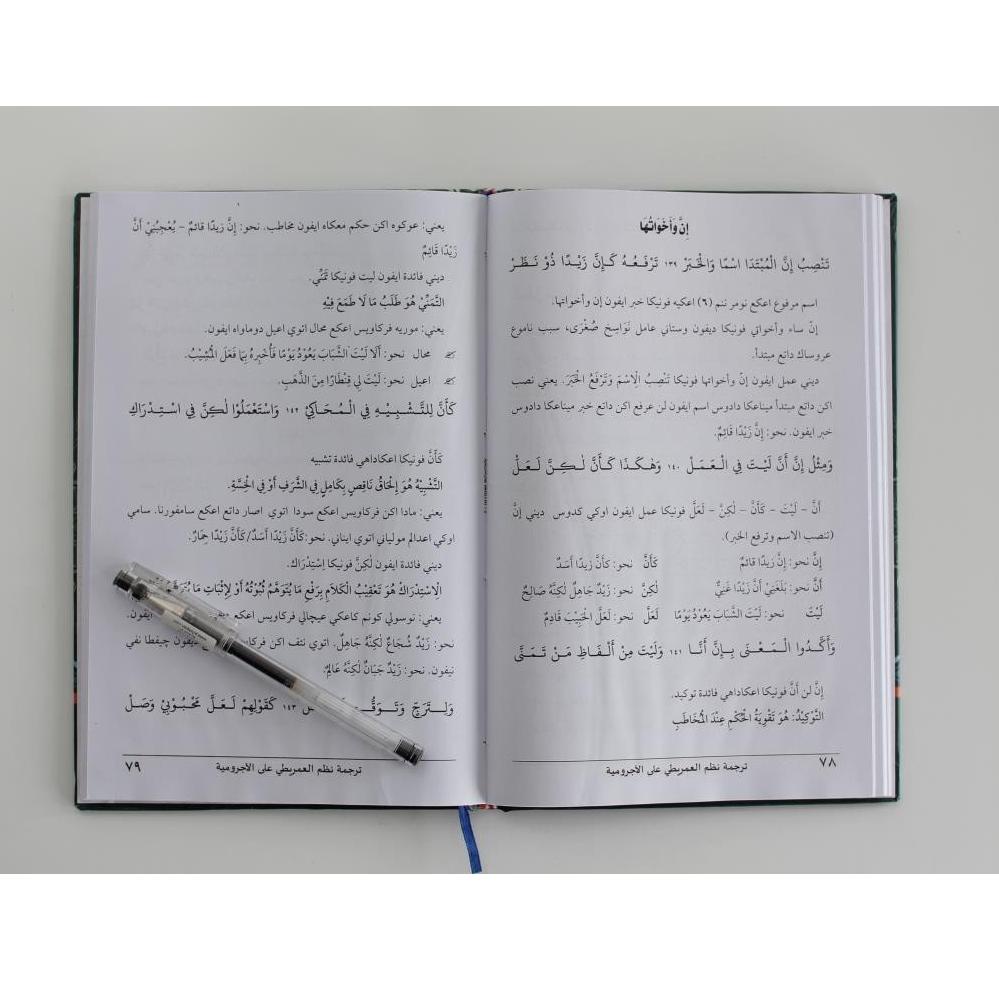 إِنَّ وَأَخَوَاتُهَا
تَنْصِبُ إِنَّ الْمُبْتَدَا اسْمًا وَالْخَبَرْ ١٣٩ تَرْفَعُهُ كَإِنَّ زَيْدًا ذُو نَظَرْ
اسم مرفوع اعكع نومر ننم (٦) اعكيه فونيكا خبر ايفون إن وأخواتها.
إنّ ساء وأخواتي فونيكا ديفون وستاني عامل نَوَاسِخ صُغْرَى، سبب ناموع
عروساك داتع مبتدأ.
ديني عمل ايفون إنّ وأخواتها فونيكا تَنْصِبُ الِاسْمَ وَتَرْفَعُ الْخَبَرَ. يعني نصب
اكن داتع مبتدأ ميناعكا دادوس اسم ايفون لن عرفع اكن داتع خبر ميناعكا دادوس
خبر ايفون. نحو: إِنَّ زَيْدًا قَائِمٌ.
وَمِثْلُ إِنَّ أَنَّ لَيْتَ فِي الْعَمَلْ ١٤٠ وَهَكَذَا كَأَنَّ لَكِنَّ لَعَلّْ
أَنَّ – لَيْتَ – كَأَنَّ – لَكِنَّ – لَعَلَّ فونيكا عمل ايفون اوكي كدوس ديني إنَّ
(تنصب الاسم وترفع الخبر).
إِنَّ نحو: إِنَّ زَيْدًا قَائِمٌ كَأَنَّ نحو: كَأَنَّ زَيْدًا أَسَدٌ
أَنَّ نحو: بَلَغَنِيْ أَنَّ زَيْدًا غَنِيٌّ لَكِنَّ نحو: زَيْدٌ جَاهِلٌ لَكِنَّهُ صَالِحٌ
لَيْتَ نحو: لَيْتَ الشَّبَابَ يَعُوْدُ يَوْمًا لَعَلَّ نحو: لَعَلَّ الْحَبِيْبَ قَادِمٌ
وَأَكَّدُوا الْمَعْنَى بِإِنَّ أَنَّا ١٤١ وَلَيْتَ مِنْ أَلْفَاظِ مَنْ تَمَنَّى
إنَّ لن أَنَّ فونيكا اعكاداهي فائدة توكيد.
التَّوْكِيْدُ: هُوَ تَقْوِيَةُ الْحُكْمِ عِنْدَ الْمُخَاطَبِ
٧٨ ترجمة نظم العمريطي على الآجرومية
يعني: عوكوه اكن حكم معكاه ايفون مخاطب. نحو: إِنَّ زَيْدًا قائمٌ – يُعْجِبُنِيْ أَنَّ
زَيْدًا قَائِمٌ
ديني فائدة ايفون ليت فونيكا تَمَنِّي.
التَّمَنِّيْ هُوَ طَلَبُ مَا لَا طَمَعَ فِيْهِ
يعني: موريه فركاويس اعكع محال اتوي اعيل دوماواه ايفون.
محال نحو: أَلَا لَيْتَ الشَّبَابَ يَعُوْدُ يَوْمًا فَأُخْبِرَهُ بِمَا فَعَلَ الْمُشِيْبُ.
اعيل نحو: لَيْتَ لِي قِنْطَارًا مِنَ الذَّهَبِ.
كَأَنَّ لِلتَّشْبِيْهِ فِي الْمُحَاكِيْ ١٤٢ وَاسْتَعْمَلُوْا لَكِنَّ فِي اسْتِدْرَاكِ
كَأَنَّ فونيكا اعكاداهي فائدة تشبيه
التَّشْبِيْهُ هُوَ إِلْحَاقُ نَاقِصٍ بِكَامِلٍ فِي الشَّرَفِ أَوْ فِي الْخِسَّةِ.
يعني: مادا اكن فركاويس اعكع سودا اتوي اصار داتع اعكع سامفورنا. سامي
اوكي اعدالم مولياني اتوي ايناني. نحو: كَأَنَّ زَيْدًا أَسَدٌ/كَأَنَّ زَيْدًا حِمَارٌ.
ديني فائدة ايفون لَكِنَّ فونيكا اِسْتِدْرَاك.
الِاسْتِدْرَاكُ هُوَ تَعْقِيْبُ الْكَلَامِ بِرَفْعِ مَا يُتَوَهَّمُ ثُبُوْتُهُ أَوْ لِإِثْبَاتِ مَا
يعني: نوسولي كونم كاعكي عيچالي فركاويس اعكع ايفون.
نحو: زَيْدٌ شُجَاعٌ لَكِنَّهُ جَاهِلٌ. اتوي نتف اكن ديفون چيفطا نفي
نيفون. نحو: زَيْدٌ جَبَانٌ لَكِنَّهُ عَالِمٌ.
وَلِتَرَجٍّ وَتَوَقُّـ ١٤٣ كَقَوْلِهِمْ لَعَلَّ مَحْبُوْبِيْ وَصَلْ
ترجمة نظم العمريطي على الآجرومية ٧٩